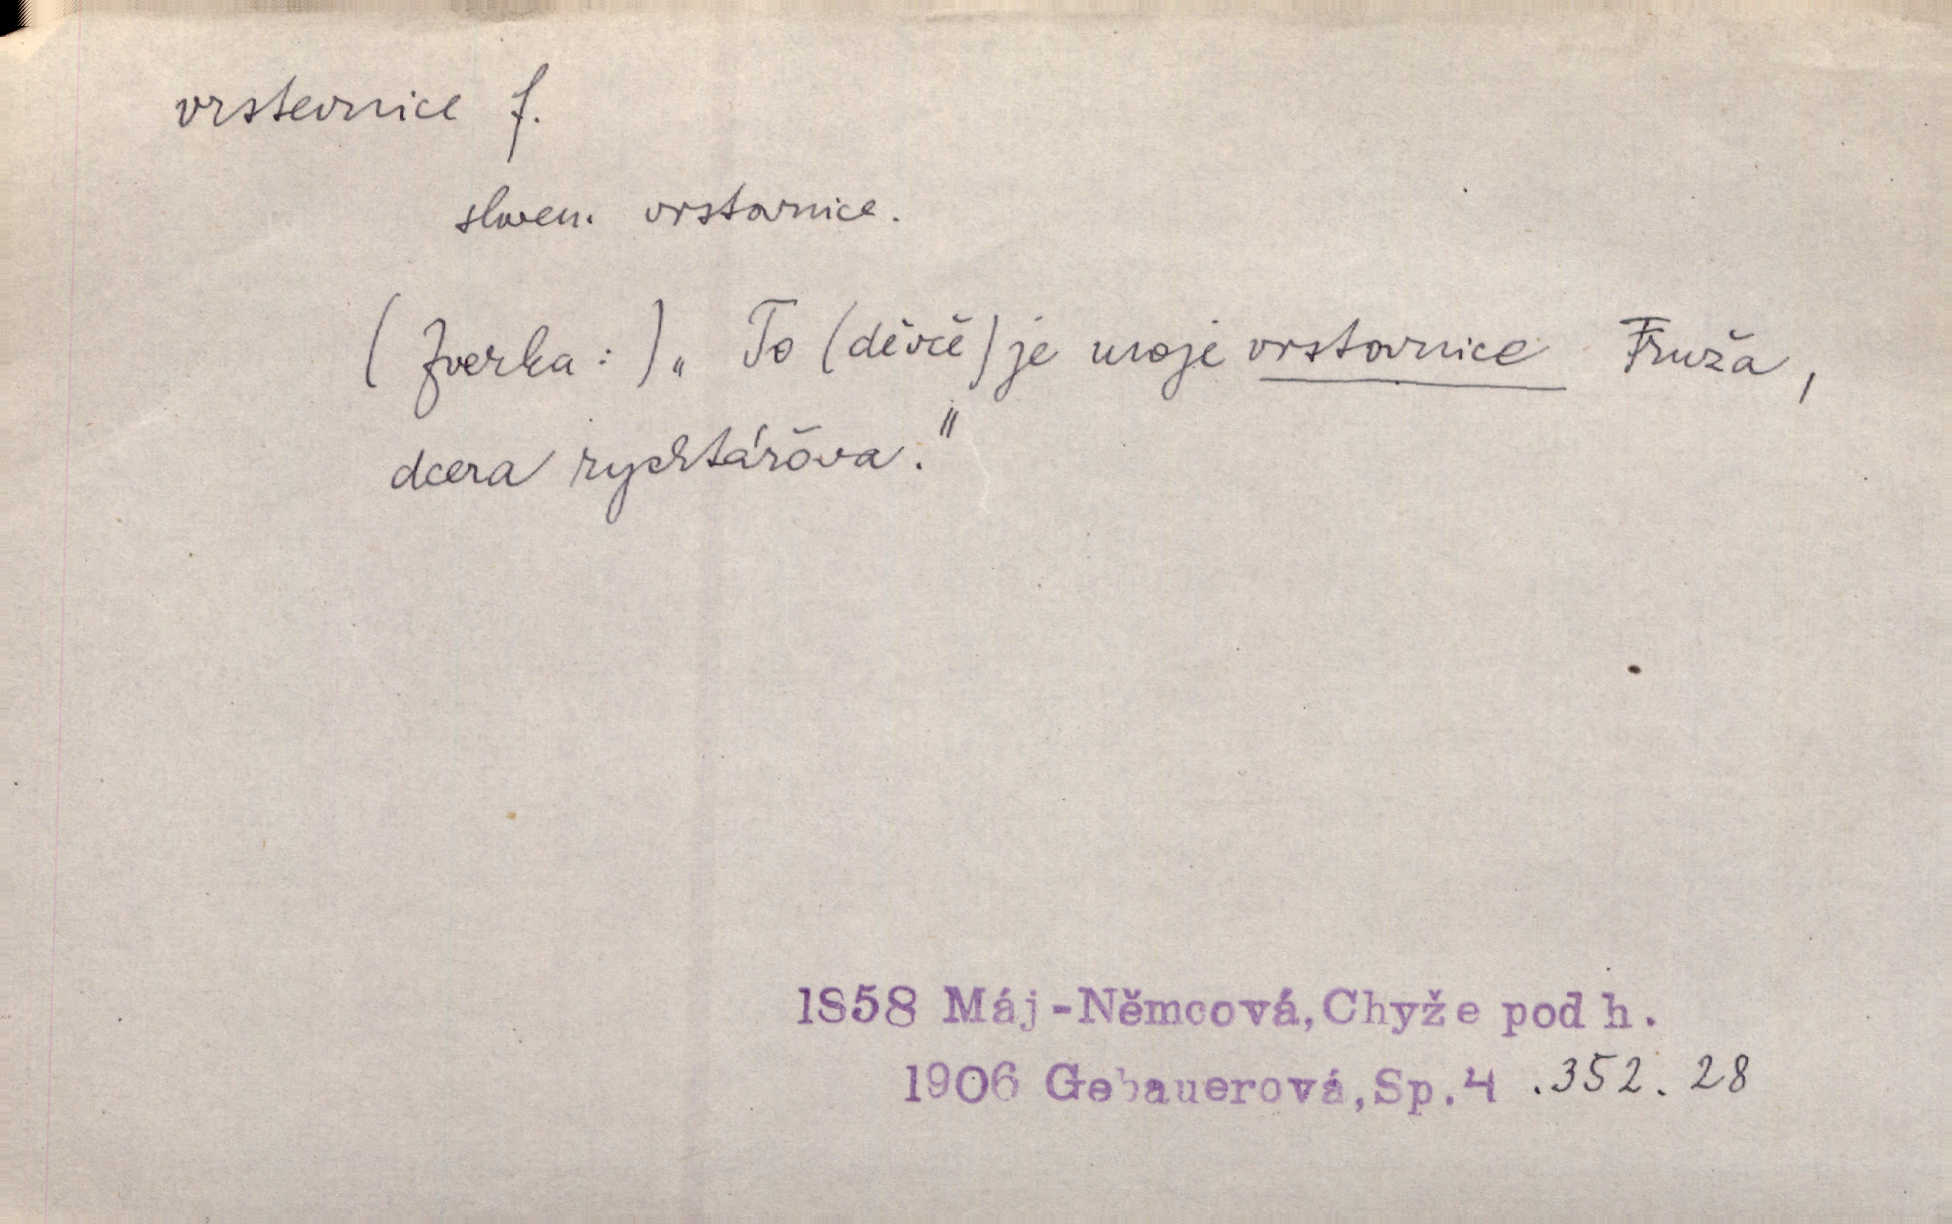 vrstevnice f.
sloven. vrstovnice.
(Zverka:) „To (děvče) je moje vrstovnice Fruža,
dcera rychtářova."
1858 Máj-Němcová, Chyže pod h.
1906 Gebauerová, Sp. 4 .352. 28